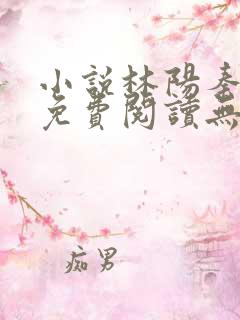 小說林陽秦
免費閱讀無
痴男